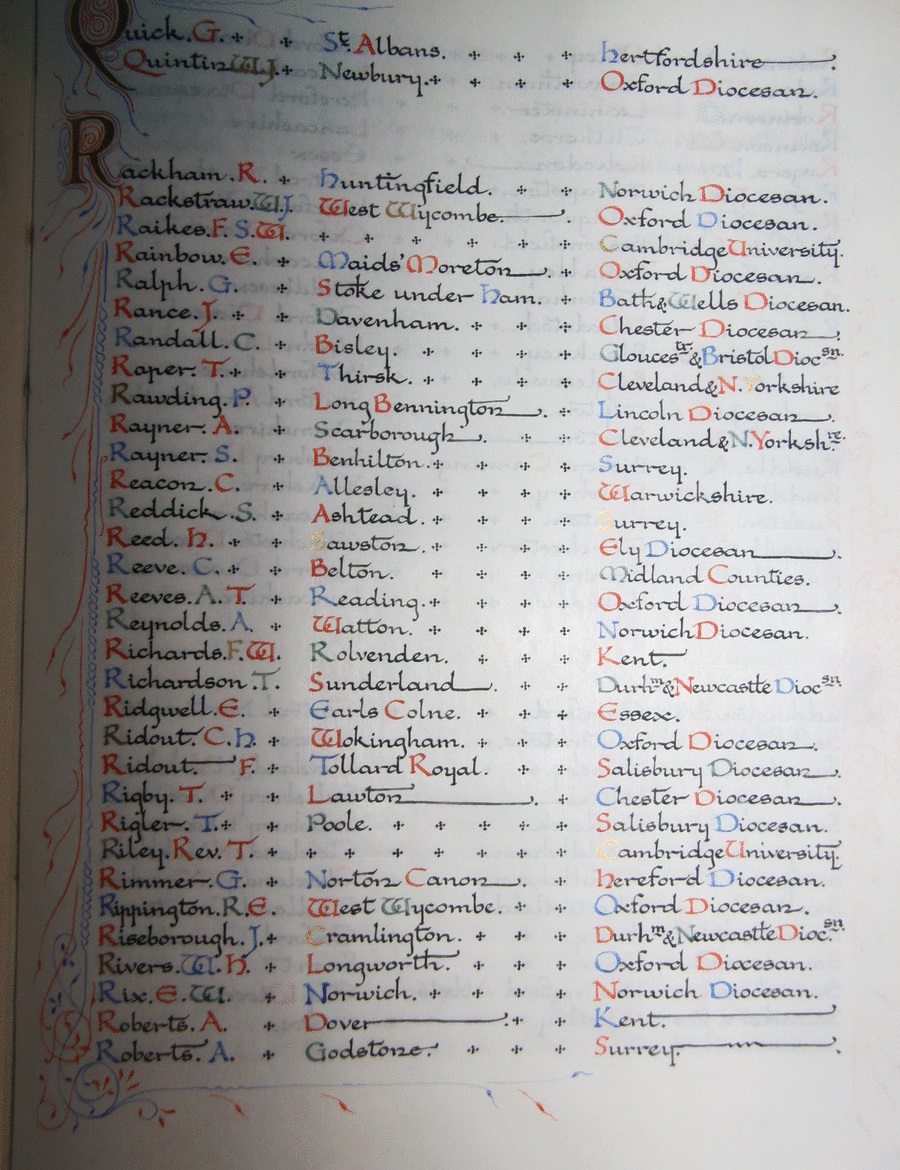 Quick. G. St. Albans. Hertfordshire.
Quintin W. J. Newbury. Oxford Diocesan.
Rackham. R. Huntingfield. Norwich Diocesan.
Rackstraw. W. J. West Wycombe. Oxford Diocesan.
Raikes. F. S. W. Cambridge University.
Rainbow. E. Maids' Moreton. Oxford Diocesan.
Ralph. G. Stoke under Ham. Bath & Wells Diocesan.
Rance. J. Davenham. Chester Diocesan.
Randall. C. Bisley. Gloucestr. & Bristol Diocsn.
Raper. T. Thirsk. Cleveland & N. Yorkshire
Rawding. P. Long Bennington. Lincoln Diocesan.
Rayner. A. Scarborough. Cleveland & N. Yorkshre.
Rayner. S. Benhilton. Surrey.
Reacon. C. Allesley. Warwickshire.
Reddick. S. Ashtead. Surrey.
Reed. H. Sawston. Ely Diocesan.
Reeve. C. Belton. Midland Counties.
Reeves. A. T. Reading. Oxford Diocesan.
Reynolds. A. Watton. Norwich Diocesan.
Richards. F. W. Rolvenden. Kent.
Richardson. T. Sunderland. Durhm & Newcastle Diocsn.
Ridgwell. E. Earls Colne. Essex.
Ridout. C. H. Wokingham. Oxford Diocesan.
Ridout. F. Tollard Royal. Salisbury Diocesan.
Rigby. T. Lawton. Chester Diocesan.
Rigler. T. Poole. Salisbury Diocesan.
Riley. Rev. T. Cambridge University.
Rimmer. G. Norton Canon. Hereford Diocesan.
Rippington. R. E. West Wycombe. Oxford Diocesan.
Riseborough. J. Cramlington. Durhm & Newcastle Diocsn.
Rivers. W. H. Longworth. Oxford Diocesan.
Rix. E. W. Norwich. Norwich Diocesan.
Roberts. A. Dover. Kent.
Roberts. A. Godstone. Surrey.